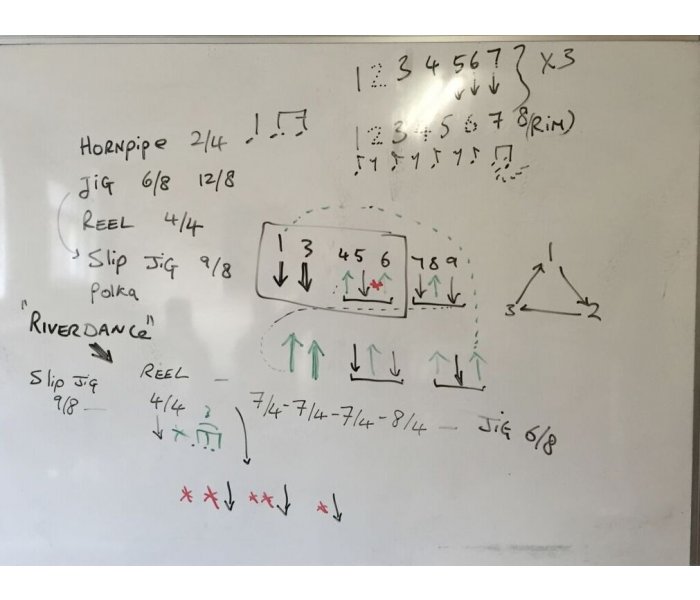 1 2 3 4 5 6 7 } x3
1 2 3 4 5 6 7 8 (RIM)
HORNPIPE 2/4
JIG 6/8 12/8
REEL 4/4
SLIP JIG 9/8
POLKA
1 3 4 5 6 7 8 9
1
3 2
"RIVERDANCE"
SLIP JIG
9/8
REEL
4/4
7/4-7/4-7/4-8/4
JIG 6/8